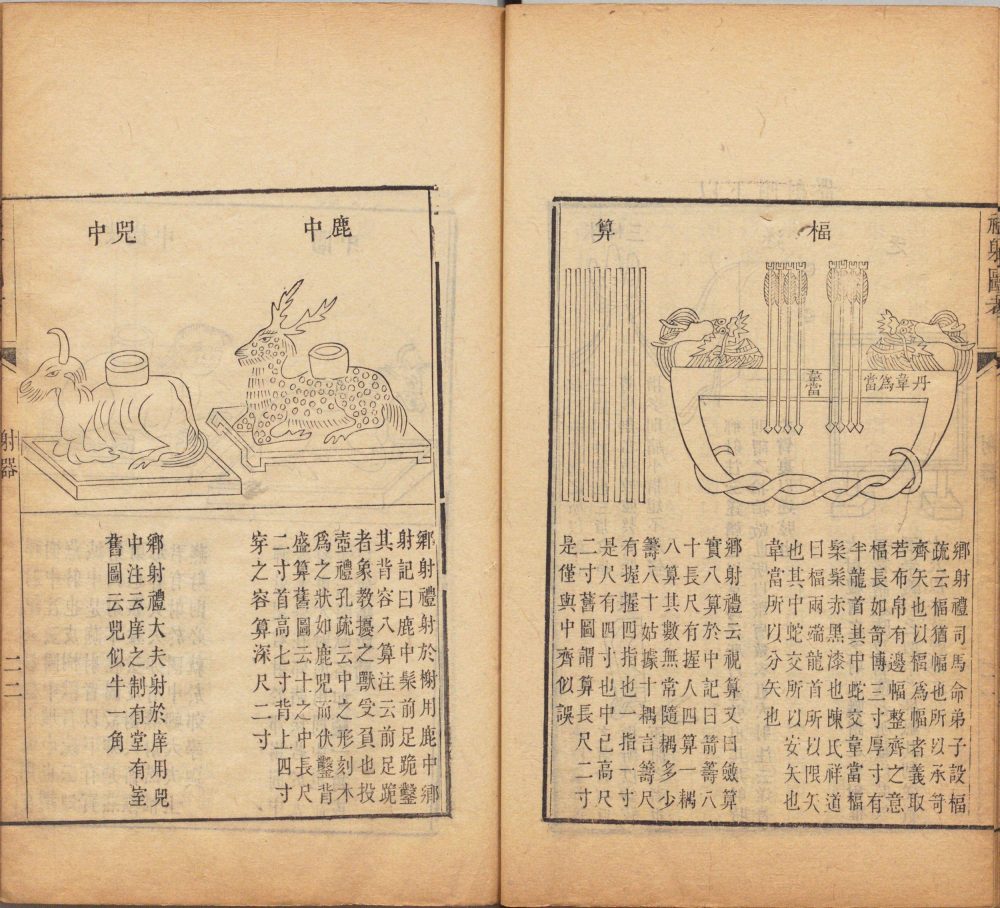 射圖
楅
韋當
丹韋爲當
鄉射禮司馬命弟子設楅
疏云楅猶幅也所以承笴
齊矢也以楅爲幅者義取
若布帛有邊幅整齊之意
楅長如笴博三寸厚寸有
半龍首其中蛇交韋當楅
髤髤赤黑漆也陳氏祥道
曰楅兩端龍首所以限矢
也其中蛇交所以安矢也
韋當所以分矢也
算
鄉射禮云視算又曰斂算
實八算於中記曰箭籌八
十長尺有握八四算一耦
八算其數無常隨耦多少
籌八十姑據十耦言籌尺
有握握四指也一指寸
是尺有四寸也中已高尺
二寸舊圖謂算長尺二寸
是僅與中齊似誤
鹿中
鄉射禮射於榭用鹿中鄉
射記曰鹿中髤前足跪鑿
其背容八算注云前足跪
者象教擾之獸受負也投
壺禮孔疏云中之形刻木
爲之狀如鹿兕而伏鑿背
盛算舊圖云士之中長尺
二寸首高七寸背上四寸
穿之容算深尺二寸
兕中
鄉射禮大夫射於庠用兕
中注云庠之制有堂有室
舊圖云兕似牛一角
射器
二二